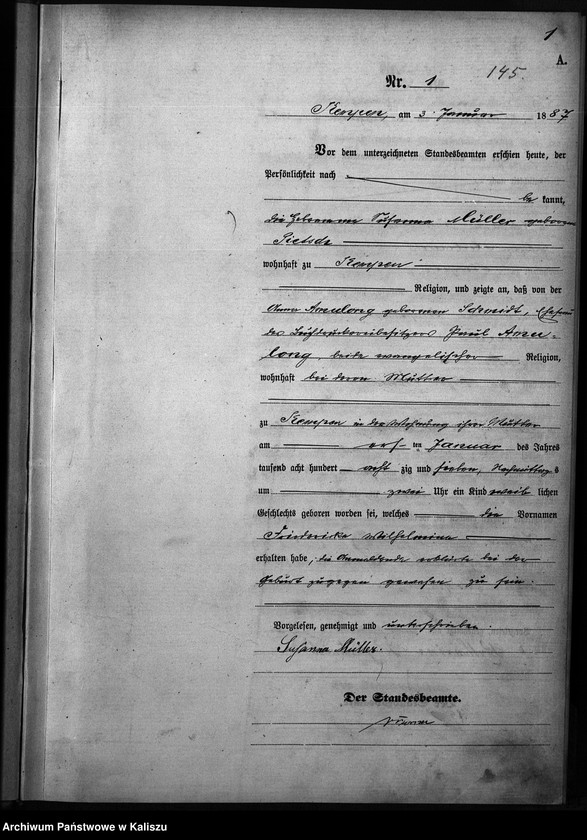 1
A.
145.
Nr. 1
Kempen, am 3. Januar 1887
Vor dem unterzeichneten Standesbeamten erschien heute, der
Persönlichkeit nach
be kannt,
die Hebamme Susanna Müller geborene
Pietsch
wohnhaft zu Kempen
Religion, und zeigte an, daß von der
Anna geborenen Schmidt, Ehefrau
des Paul
long, beide evangelischer Religion,
wohnhaft bei deren Mutter
zu Kempen in der Wohnung ihrer Mutter
am ersten Januar des Jahres
tausend acht hundert acht zig und sieben, Nachmittags
um zwei Uhr ein Kind weib lichen
Geschlechts geboren worden sei, welches die Vornamen
Friedericke Wilhelmina
erhalten habe, die Anmeldende erklärte bei der
Geburt zugegen gewesen zu sein.
Vorgelesen, genehmigt und unterschrieben.
Susanna Müller.
Der Standesbeamte.
Archiwum Państwowe w Kaliszu